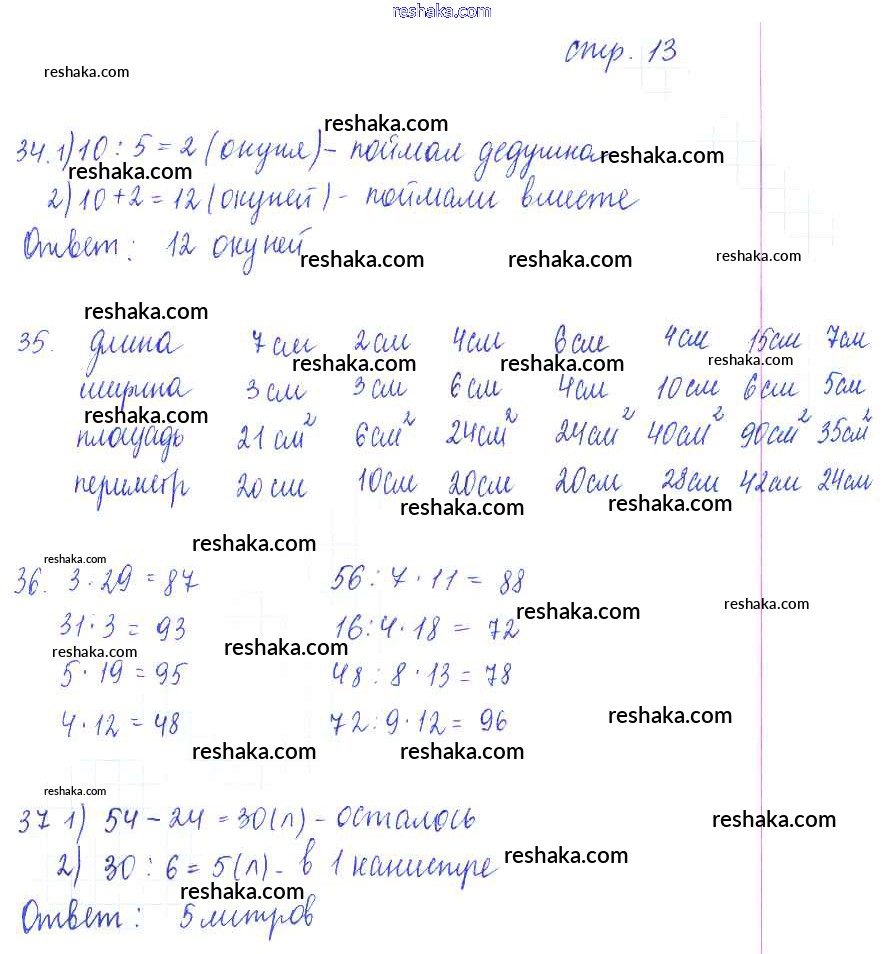 reshaka.com
стр. 13
reshaka.com
reshaka.com
34. 1) 10 : 5 = 2 (окуня) - поймал дедушка
reshaka.com
reshaka.com
2) 10 + 2 = 12 (окуней) - поймали вместе
Ответ: 12 окуней
reshaka.com reshaka.com reshaka.com
reshaka.com
35. длина 7 см 2 см 4 см 6 см 4 см 15 см 7 см
reshaka.com reshaka.com reshaka.com
ширина 3 см 3 см 6 см 4 см 10 см 6 см 5 см
reshaka.com
площадь 21 см² 6 см² 24 см² 24 см² 40 см² 90 см² 35 см²
периметр 20 см 10 см 20 см 20 см 28 см 42 см 24 см
reshaka.com reshaka.com
reshaka.com
reshaka.com
36. 3 · 29 = 87 56 : 7 · 11 = 88
reshaka.com reshaka.com
31 · 3 = 93 16 : 4 · 18 = 72
reshaka.com reshaka.com
5 · 19 = 95 48 : 8 · 13 = 78
4 · 12 = 48 72 : 9 · 12 = 96
reshaka.com
reshaka.com reshaka.com
reshaka.com
37 1) 54 - 24 = 30 (л) - осталось
reshaka.com
2) 30 : 6 = 5 (л) - в 1 канистре
reshaka.com
reshaka.com
Ответ: 5 литров